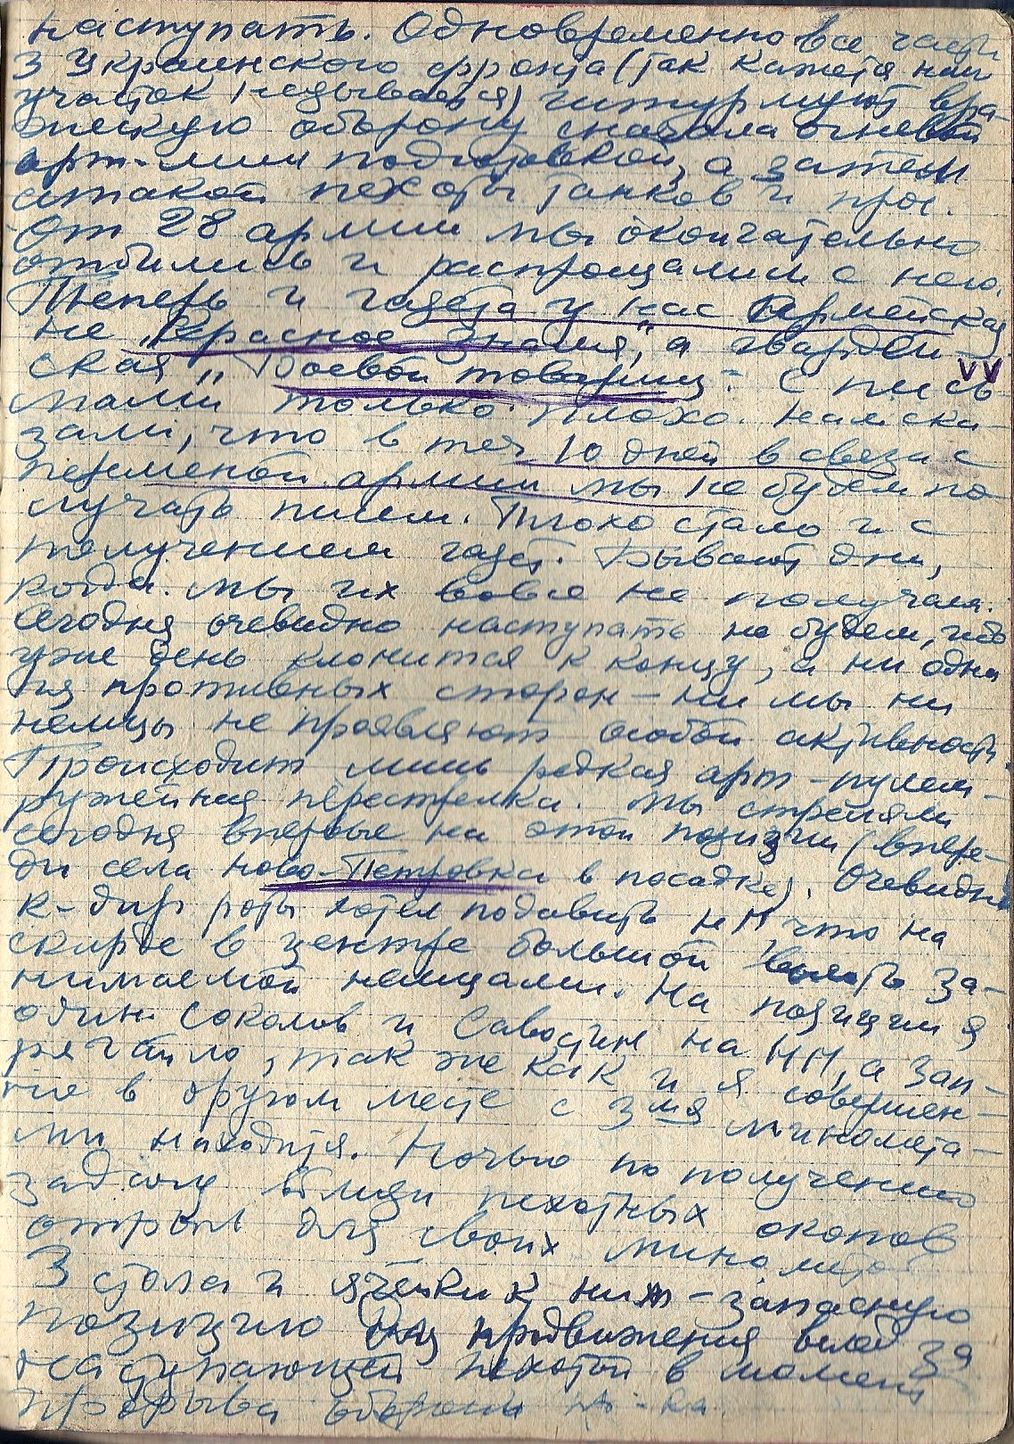 наступать. Одновременно все части
3 Украинского фронта (так кажется наш
участок называется) штурмуют вра-
жескую оборону сначала огневой
арт-мин подготовкой, а затем
атакой пехоты танков и проч.
От 28 армии мы окончательно
отбились и распрощались с нею.
Теперь и газета у нас армейская
не "Красное знамя", а гвардей-
ская "Боевой товарищ". С пись
мами только плохо. Нам ска-
зали, что в теч 10 дней в связи с
переменой армии мы не будем по-
лучать писем. Плохо стало и с
получением газет. Бывают дни,
когда мы их вовсе не получаем.
Сегодня очевидно наступать не будем, ибо
уже день клонится к концу, а ни одна
из противных сторон - ни мы ни
немцы не проявляют особой активности.
Происходит лишь редкая арт-пулем-
ружейная перестрелка. Мы стреляли
сегодня впервые на этой позиции (впере-
ди села Ново-Петровка в посадке). Очевидно
к-дир роты хотел подавить НП что на
скирде в центре большой за-
нимаемой немцами. На позиции я
один. Соколов и Савостин на НП, а Зан-
рягайло, так же как и я совершен-
но в другом месте с 3мя миномета-
ми находится. Ночью по получению
задачи вблизи пехотных окопов
отрыл для своих минометов
3 стола и ячейки к ним - запасную
позицию для продвижения вслед за
наступающей пехотой в момент
прорыва обороны пр-ка.